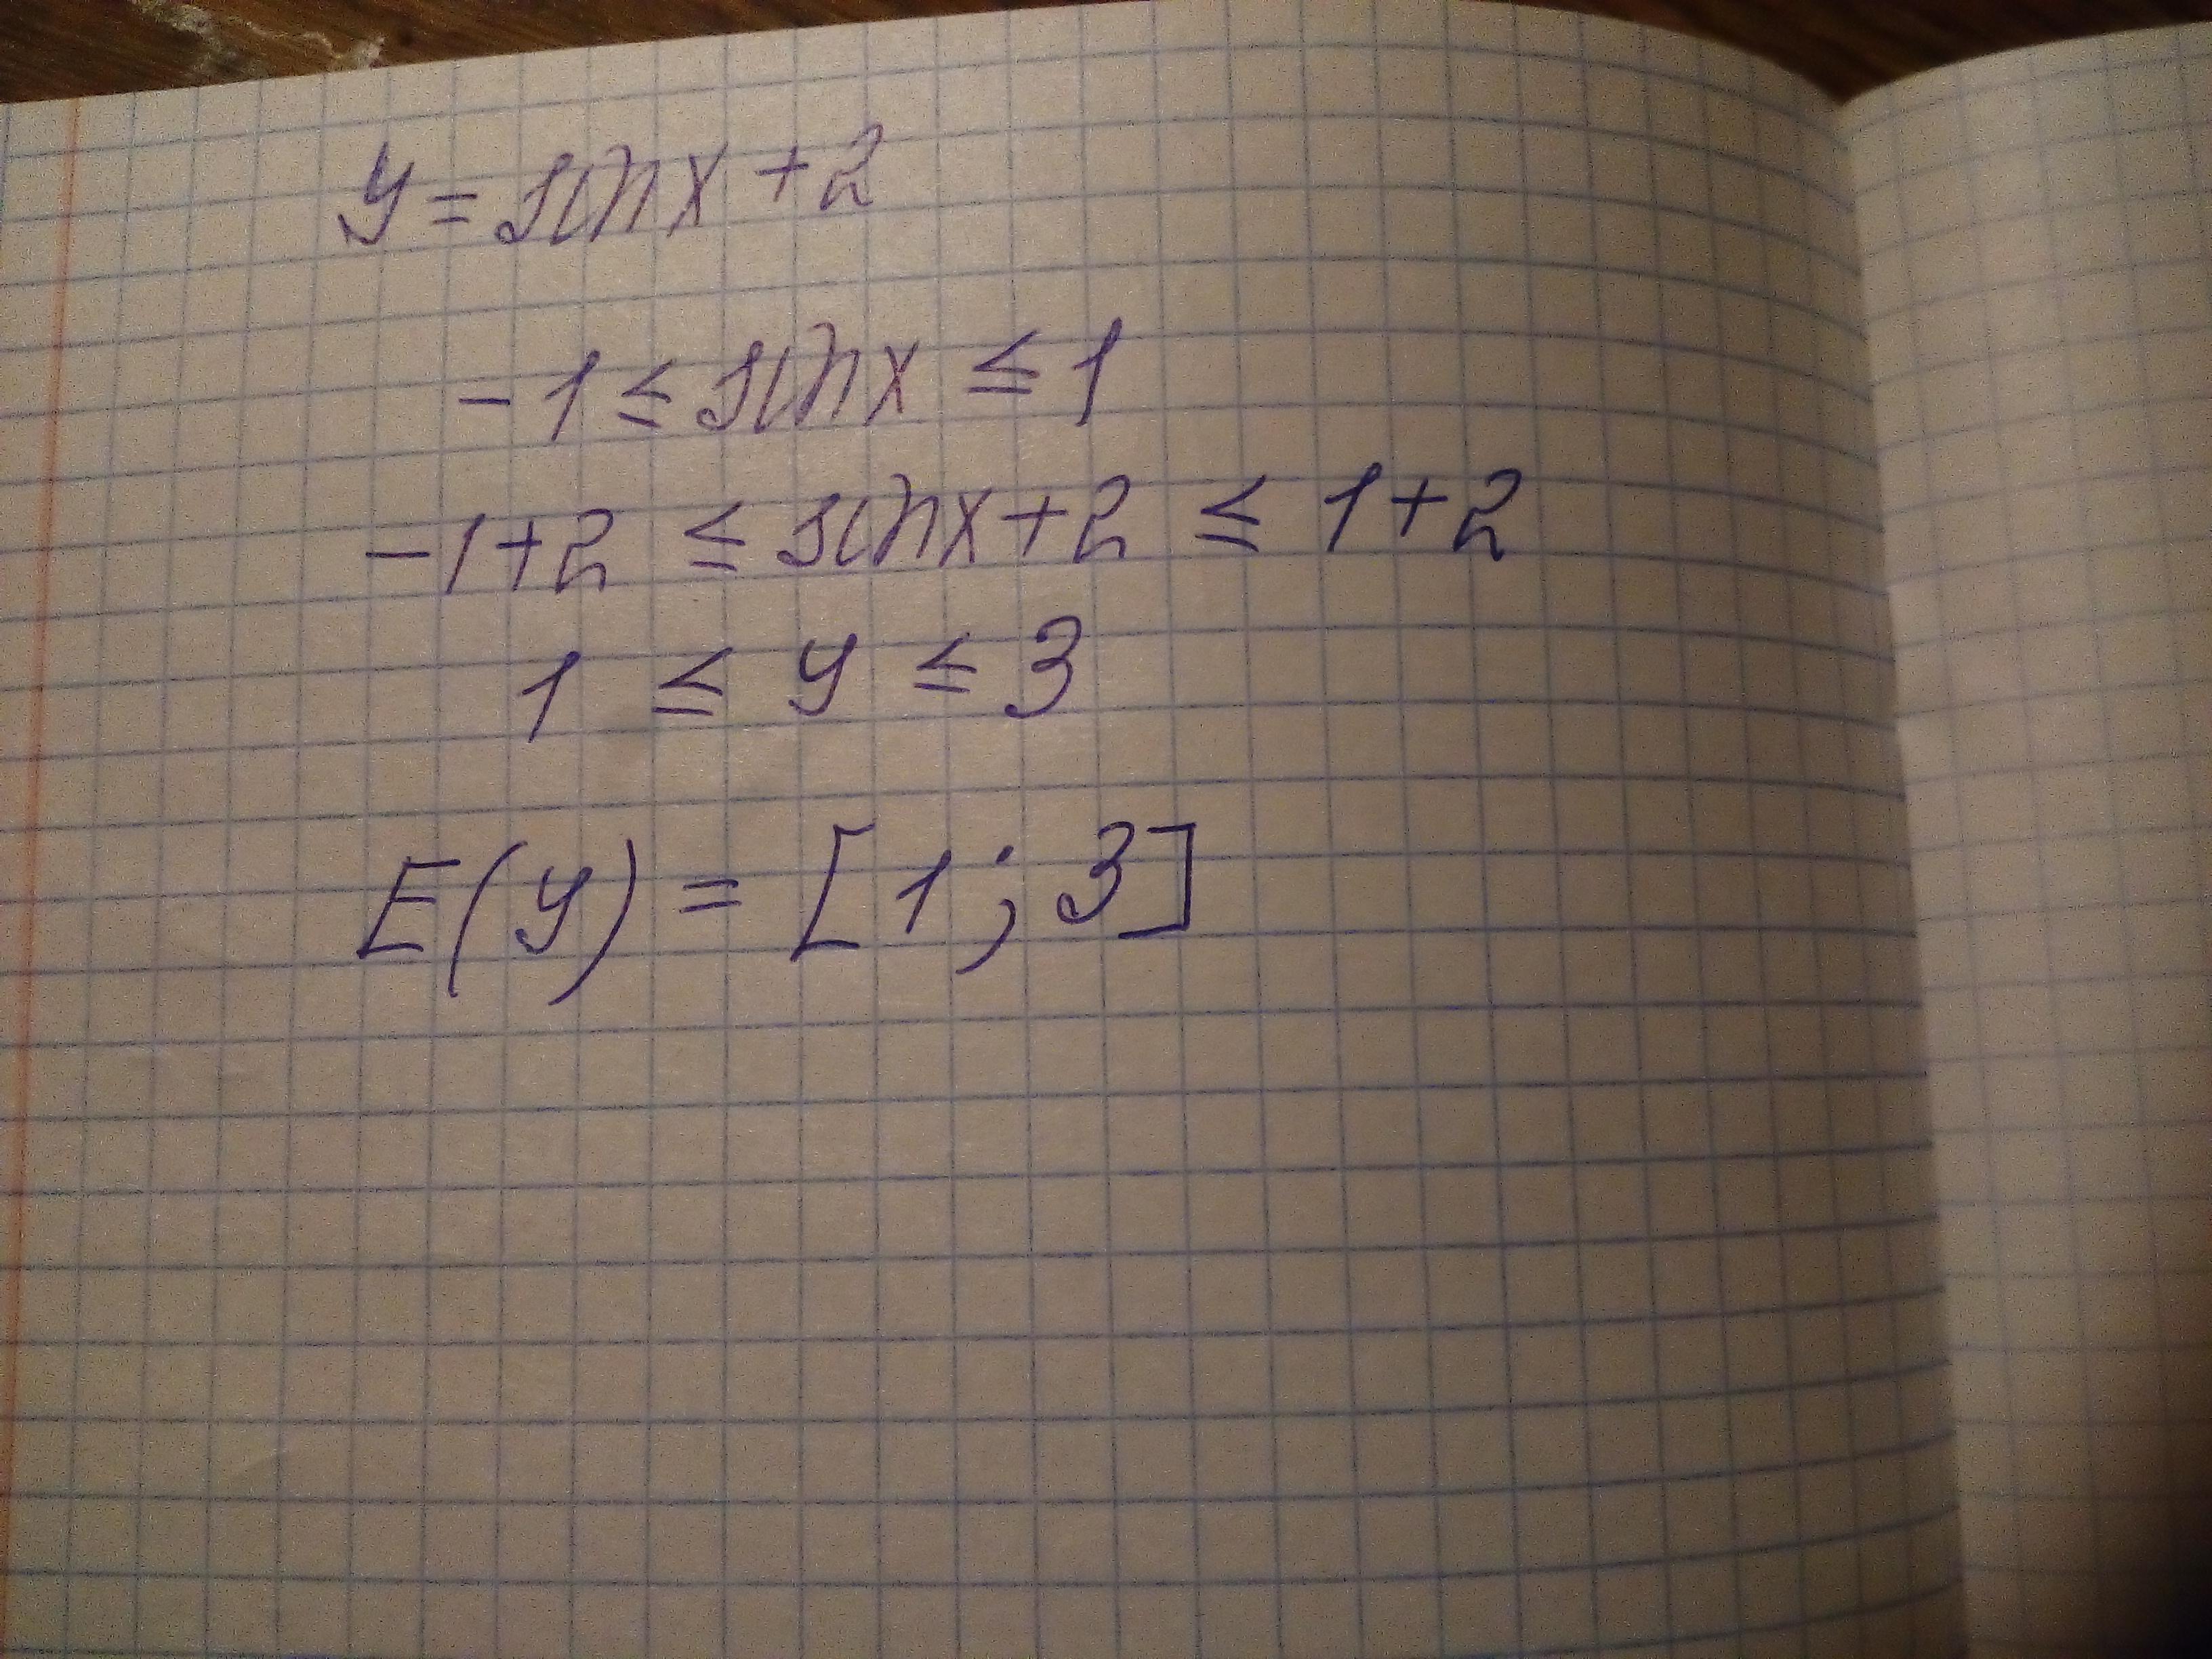 y = sin x + 2
-1 ≤ sin x ≤ 1
-1+2 ≤ sin x+2 ≤ 1+2
1 ≤ y ≤ 3
E(y) = [1; 3]